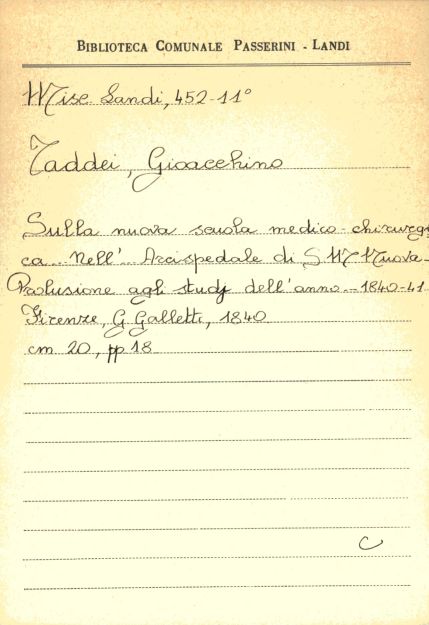 BIBLIOTECA COMUNALE PASSERINI - LANDI
Misc. Landi, 452-11°
Taddei, Gioacchino
Sulla nuova scuola medico-chirurgi
ca Nell' Arcispedale di S M Nuova-
Prolusione agli studj dell'anno - 1840-41
Firenze, G Galletti, 1840
cm 20, pp 18
C